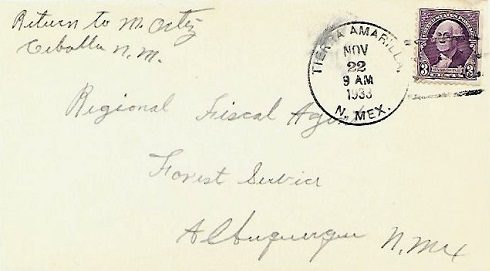 Return to M. Ortiz
Cebolla N.M.
TIERRA AMARILLA
NOV
22
9 AM
1933
N. MEX.
3 3
Regional Fiscal Agent
Forest Service
Albuquerque N. Mex